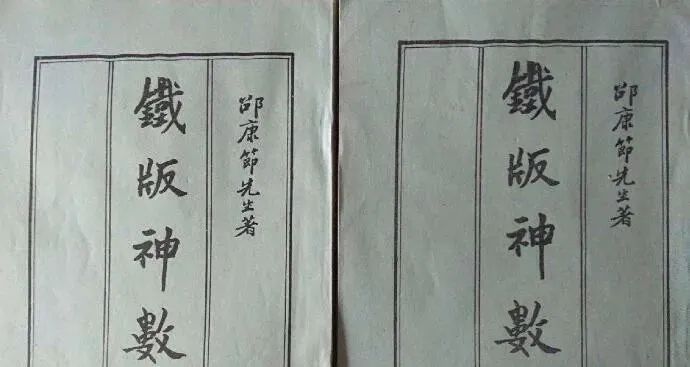 邵康節先生著
鐵版神數
邵康節先生著
鐵版神數